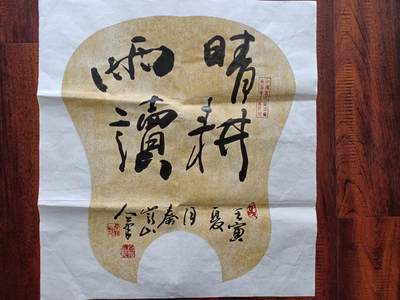 晴耕
雨讀
壬寅
夏
月
秦
嶺山
人書